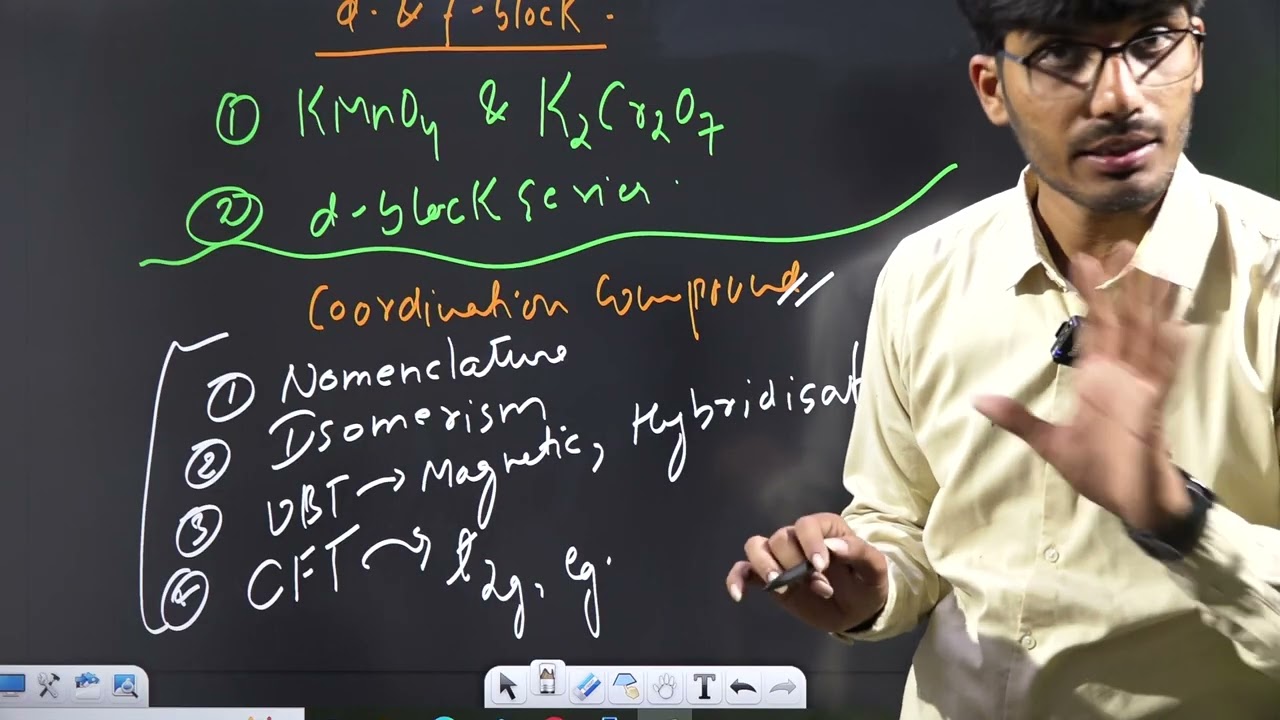 d. & f-block.
① KMnO4 & K2Cr2O7
② d-block series.
Coordination Compound
① Nomenclature
② Isomerism
③ VBT → Magnetic, Hybridisat
④ CFT → t2g, eg.
T